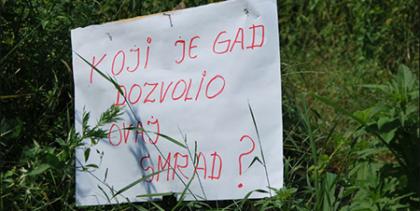 KOJI JE GAD
DOZVOLIO
OVAJ
SMRAD?